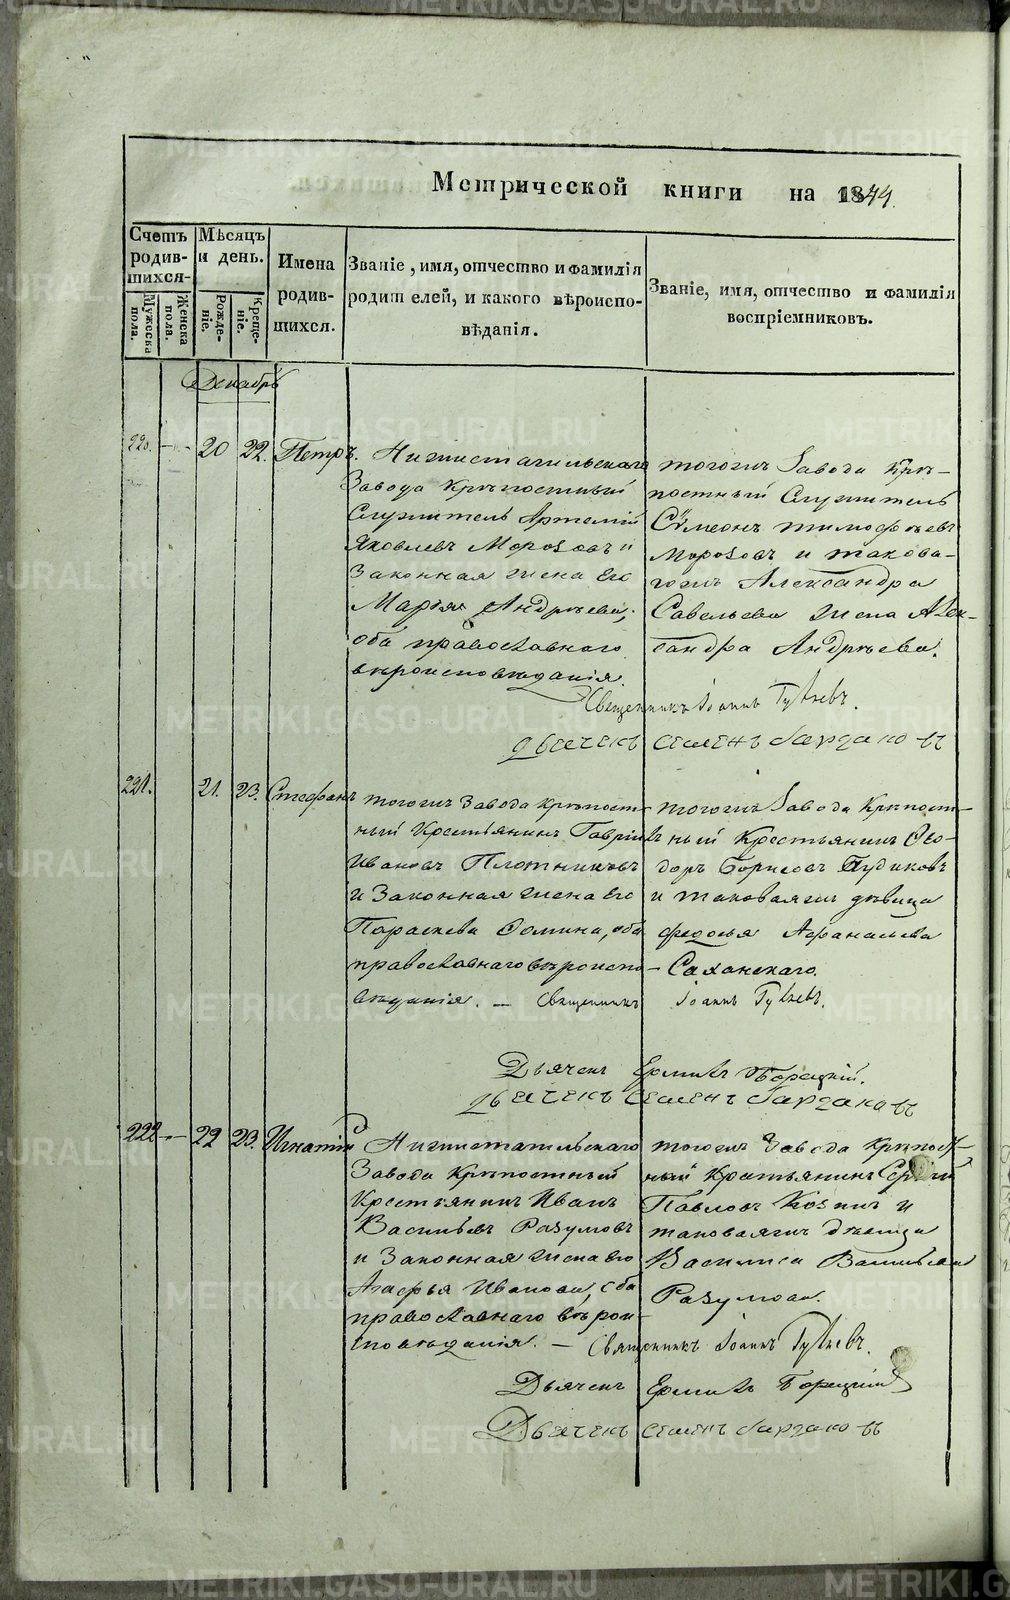 Метрической книги на 1844.
Счетъ родив-шихся.
Мѣсяцъ и день.
Имена родив-шихся.
Званіе, имя, отчество и фамилія родителей, и какого вѣроиспо-вѣданія.
Званіе, имя, отчество и фамилія воспріемниковъ.
Мужеска пола.
Женска пола.
Рожде-ніе.
Креще-ніе.
Декабрь
220. — 20 22. Петръ.
Нижнетагильскаго
Завода Крѣпостный
Служитель Артемій
Яковлевъ Морозовъ и
Законная жена его
Марія Андрѣева,
оба православнаго
вѣроисповѣданія.
тогожъ Завода Крѣ-
постный Служитель
Сѵмеонъ Тимофѣевъ
Морозовъ и такова-
гожъ Александра
Савельева жена Алек-
сандра Андрѣева.
Священникъ Іоаннъ
Дьячекъ Семенъ
221. 21. 23. Стефанъ
тогожъ Завода Крѣпост-
ный Крестьянинъ Гавріилъ
Ивановъ Плотниковъ
и Законная жена его
Параскева Фомина, оба
православнаго вѣроиспо-
вѣданія. — Священникъ Іоаннъ
тогожъ Завода Крѣпост-
ный Крестьянинъ Фео-
доръ Борисовъ
и таковагожъ дѣвица
Федосья Афанасьева
Дьячекъ Ермилъ Борецкій.
Дьячекъ Семенъ
222 — 22 23. Игнатій
Нижнетагильскаго
Завода Крѣпостный
Крестьянинъ Иванъ
Васильевъ Разумовъ
и Законная жена его
Агафья Иванова, оба
православнаго вѣрои-
сповѣданія. — Священникъ Іоаннъ
тогожъ Завода Крѣпост-
ный Крестьянинъ Сергій
Павловъ Козинъ и
таковагожъ дѣвица
Василиса Васильева
Разумова.
Дьячекъ Ермилъ Борецкій
Дьячекъ Семенъ
METRIKI.GASO-URAL.RU